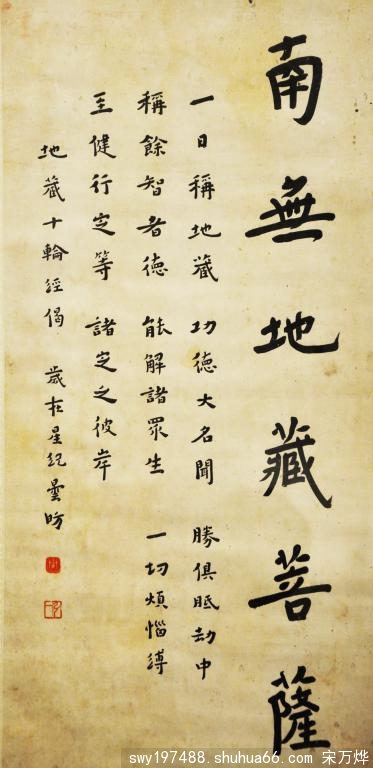 南無地藏菩薩
一日稱地藏 功德大名聞 勝俱眂劫中
稱餘智者德 能解諸眾生 一切煩惱縛
至健行定等 諸定之彼岸
地藏十輪經偈 歲在星紀曇昉
swy197488.shuhua66.com 宋万烨